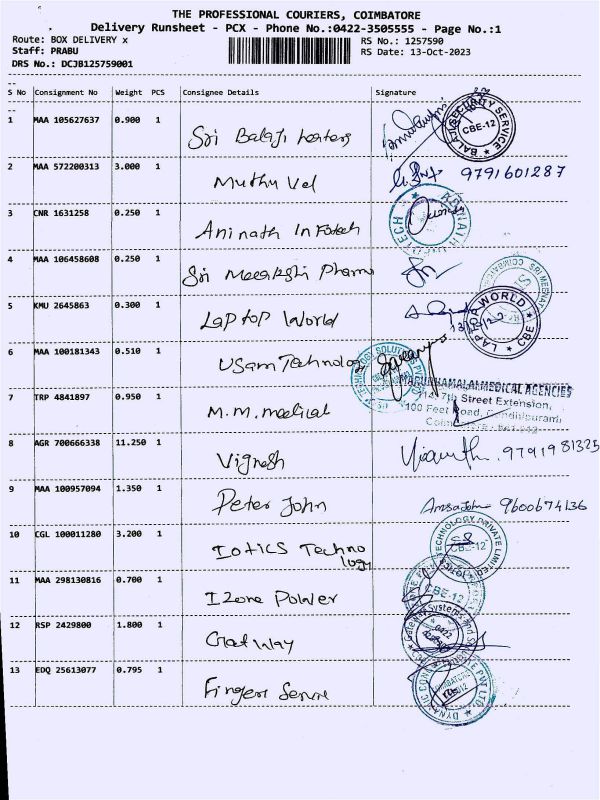 THE PROFESSIONAL COURIERS, COIMBATORE
Delivery Runsheet - PCX - Phone No.:0422-3505555 - Page No.:1
Route: BOX DELIVERY x RS No.: 1257590
Staff: PRABU RS Date: 13-Oct-2023
DRS No.: DCJB125759001
S No Consignment No Weight PCS Consignee Details Signature
1 MAA 105627637 0.900 1 Sri Balaji
BALAJI SECURITY SERVICE CBE-12
2 MAA 572200313 3.000 1 Muthu Vel 9791601287
3 CNR 1631258 0.250 1 Aninath Infotech
4 MAA 106458608 0.250 1 Sri Meenakshi Pharma
5 KMU 2645863 0.300 1 Laptop World
LAPTOP WORLD CBE
6 MAA 100181343 0.510 1 Usam Technology
7 TRP 4841897 0.950 1 M.M. medical
MARUDHAMALAI MEDICAL AGENCIES
7th Street Extension,
100 Feet Road, Gandhipuram,
8 AGR 700666338 11.250 1 Vignesh 9791981325
9 MAA 100957094 1.350 1 Peter John 9600674136
10 CGL 100011280 3.200 1 Iotics Techno
logy
TECHNOLOGY PRIVATE LIMITED CBE-12
11 MAA 298130816 0.700 1 Izone Power
CBE-12
12 RSP 2429800 1.800 1 Gateway
Gateway Systems and
13 EDQ 25613077 0.795 1 Fingers
DYNAMIC PVT LTD